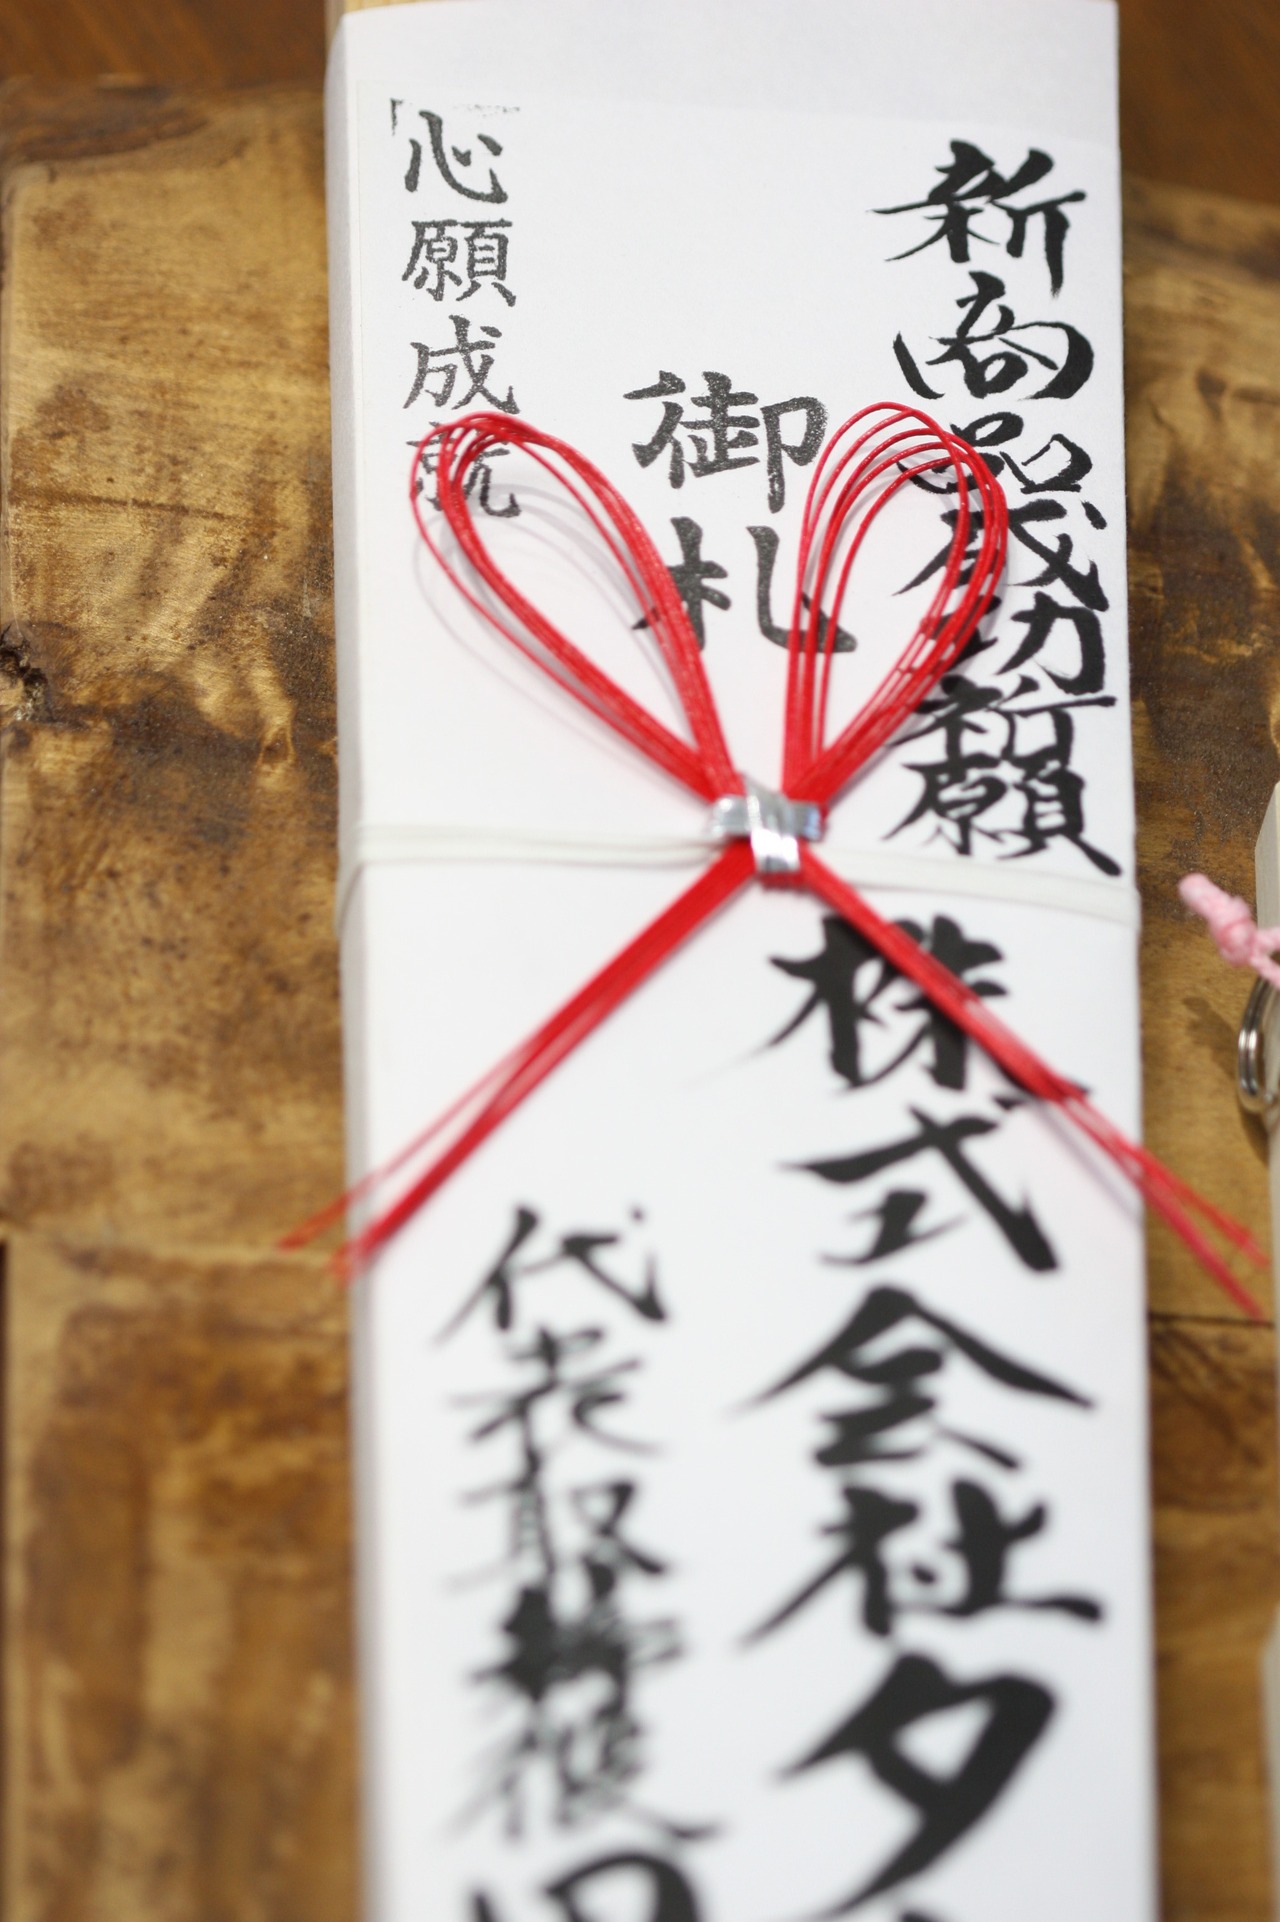 新商品成功祈願
株式会社タ
御札
代表取締役
「心願成就